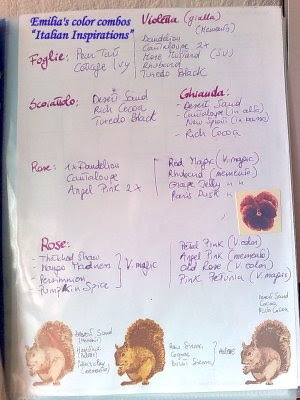 Emilia's color combos
"Italian Inspirations"
Violetta (gialla)
(Memento)
Foglie:
Pear Tart
Cottage
V
Dandelion
Cantaloupe 2x
Rhubarb
Tuxedo Black
Scoiattolo:
Desert Sand
Rich Cocoa
Tuxedo Black
Ghianda:
- Desert Sand
- Cantaloupe (in alto)
New Sprout (in basso)
- Rich Cocoa
Rose:
1x Dandelion
Cantaloupe
Angel Pink 2x
Red Magic (V. magic)
Rhubarb (memento)
Grape Jelly " "
Paris Dusk " "
Rose:
Thatched Straw
Mango Madness
Persimmon
Pumpkin Spice
V-magic
Petal Pink (V. color)
Angel Pink (memento)
Old Rose (V. color)
Pink Petunia (V. magic)
Desert Sand
Cocoa
Rich Cocoa
Desert Sand
(memento)
(memento)
Raw Sienna
Cognac